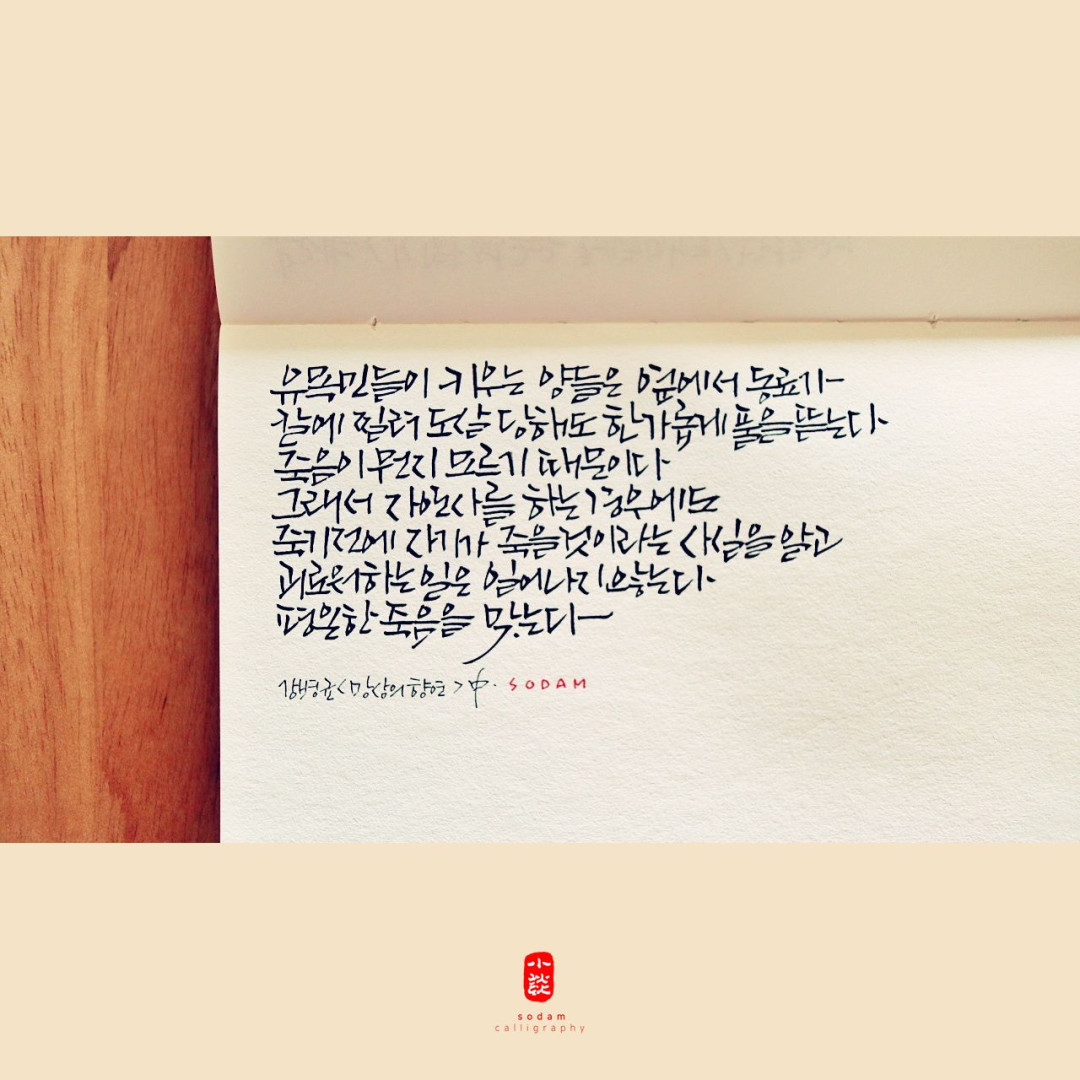 유목민들이 키우는 양들은 옆에서 동료가
칼에 찔려 도살 당해도 한가롭게 풀을 뜯는다.
죽음이 뭔지 모르기 때문이다
그래서 자연사를 하는 경우에도
죽기전에 자기가 죽을것이라는 사실을 알고
괴로워하는 일은 일어나지 않는다.
평온한 죽음을 맞는다
강병균 <망상의 향연> 中. SODAM
小
談
sodam
calligraphy